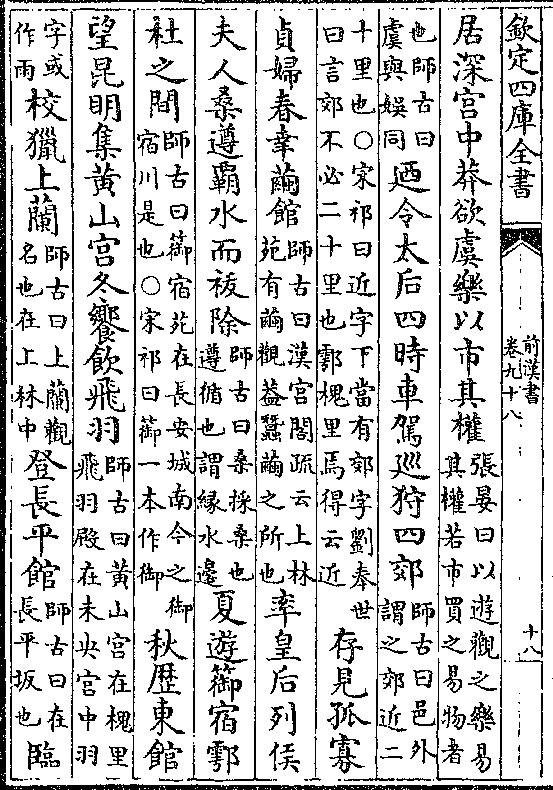 欽定四庫全書 前漢書卷九十八 十八
居深宫中莽欲虞樂以市其權張晏曰以遊觀之樂易其權若市買之易物者
也師古曰虞與娯同廼令太后四時車駕廵狩四郊師古曰邑外謂之郊近二
十里也○宋祁曰近字下當有郊字劉奉世曰言郊不必二十里也鄠槐里焉得云近存見孤寡
貞婦春幸繭館師古曰漢宫閣疏云上林苑有繭觀葢蠶繭之所也率皇后列侯
夫人桑遵霸水而祓除師古曰桑採桑也遵循也謂縁水邊夏遊篽宿鄠
杜之間師古曰篽宿苑在長安城南今之御宿川是也○宋祁曰篽一本作御秋歴東館
望昆明集黄山宫冬饗飲飛羽師古曰黄山宫在槐里飛羽殿在未央宫中羽
字或作雨校獵上蘭師古曰上蘭觀名也在上林中登長平館師古曰在長平坂也臨